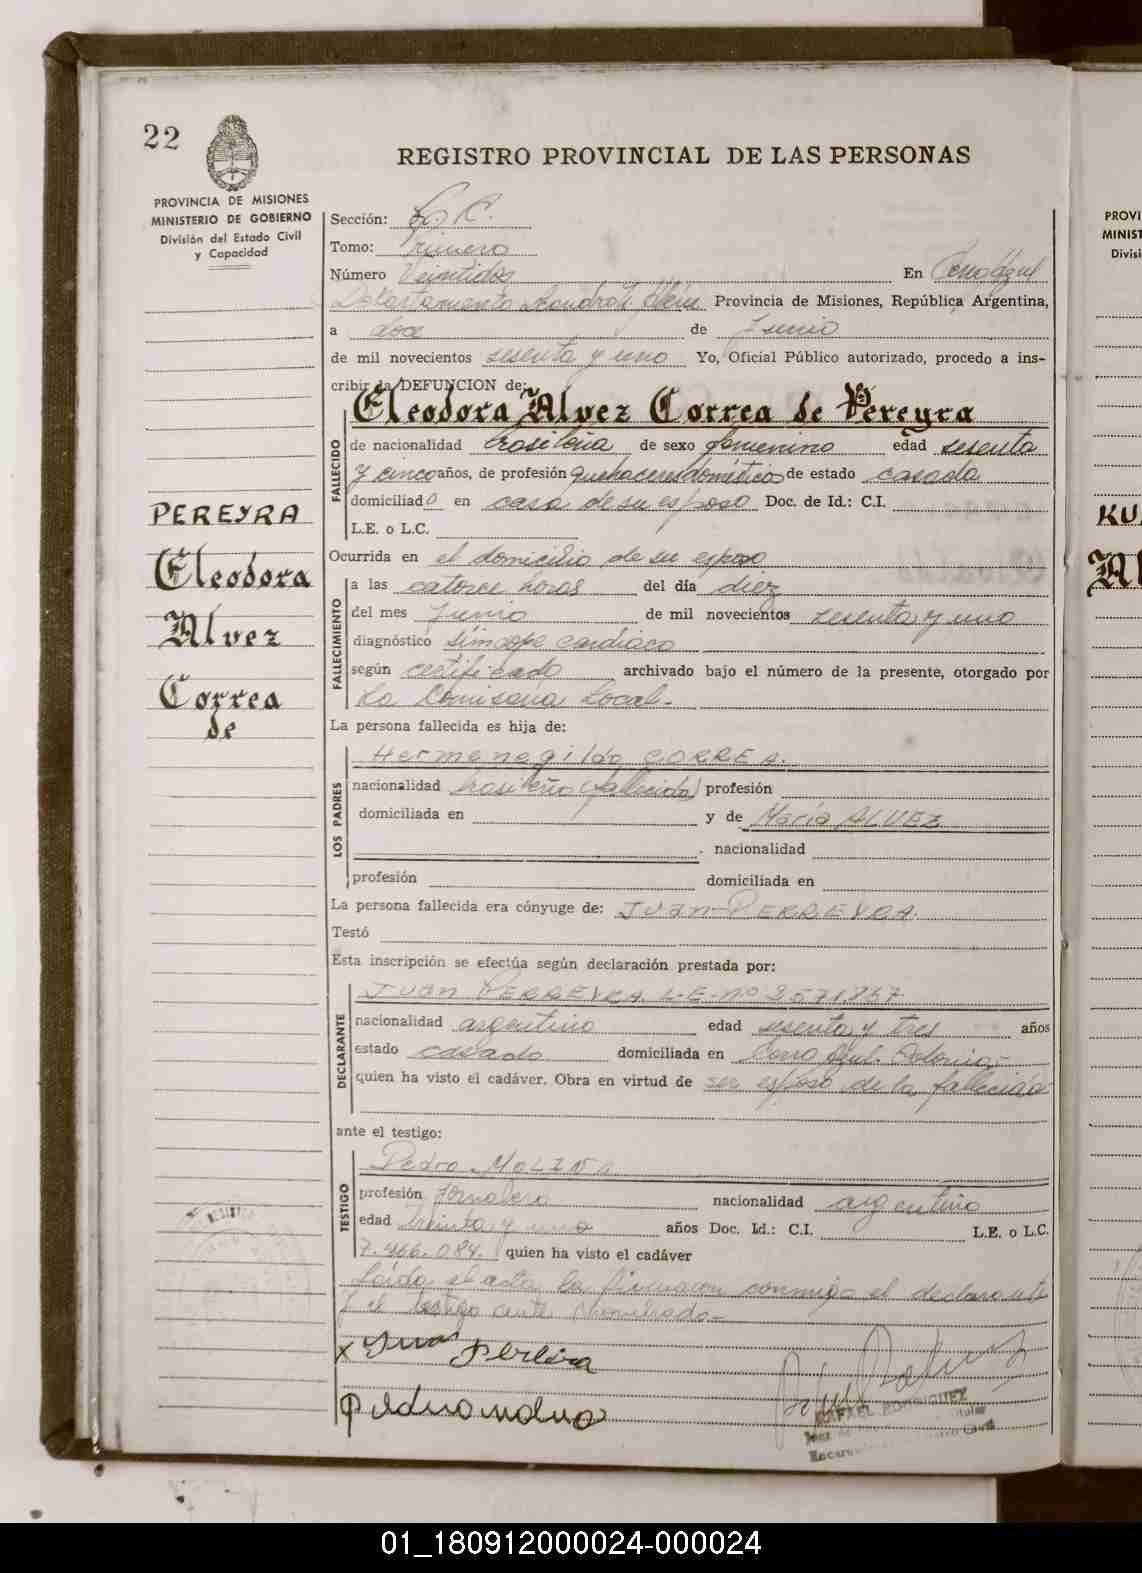 22
PROVINCIA DE MISIONES
MINISTERIO DE GOBIERNO
División del Estado Civil
y Capacidad
REGISTRO PROVINCIAL DE LAS PERSONAS
Sección:
Tomo: Primero
Número Veintidos En Cerro Azul
Departamento Leandro N. Alem Provincia de Misiones, República Argentina,
a doce de Junio
de mil novecientos sesenta y uno Yo, Oficial Público autorizado, procedo a ins-
cribir la DEFUNCION de:
Eleodora Alvez Correa de Pereyra
FALLECIDO
de nacionalidad brasileña de sexo femenino edad sesenta
y cinco años, de profesión quehaceres domésticos de estado casada
domiciliado en casa de su esposo Doc. de Id.: C.I.
L.E. o L.C.
PEREYRA
Eleodora
Alvez
Correa
de
Ocurrida en el domicilio de su esposo
FALLECIMIENTO
a las catorce horas del día diez
del mes Junio de mil novecientos sesenta y uno
diagnóstico síncope cardiaco
según certificado archivado bajo el número de la presente, otorgado por
La Comisaria Local.-
La persona fallecida es hija de:
LOS PADRES
Hermenegildo CORREA.
nacionalidad brasileño (fallecido) profesión
domiciliada en y de María ALVEZ
. nacionalidad
profesión domiciliada en
La persona fallecida era cónyuge de: Juan PERREYRA.
Testó
Esta inscripción se efectúa según declaración prestada por:
DECLARANTE
Juan PERREYRA. L.E. nº
nacionalidad argentino edad sesenta y tres años
estado casado domiciliada en Cerro Azul. Colonia.-
quien ha visto el cadáver. Obra en virtud de ser esposo de la fallecida
ante el testigo:
TESTIGO
Pedro MOLINA
profesión Jornalero nacionalidad argentino
edad treinta y uno años Doc. Id.: C.I. L.E. o L.C.
7.466.084. quien ha visto el cadáver
Leída el acta, la firmaron conmigo el declarante
y el testigo ante nombrado.-
x Juan Pereira
Pedro molina
RAFAEL RODRIGUEZ
PROVI
MINIST
Divisi
KU
Al
01_180912000024-000024